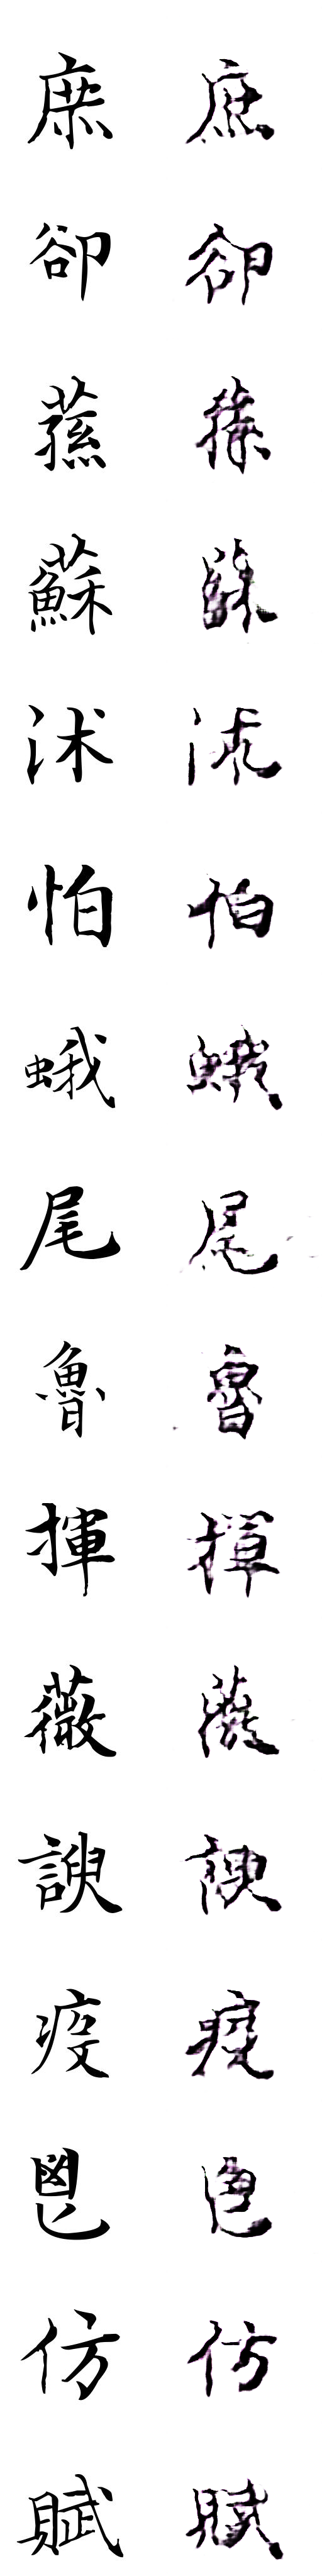 庶 庶
卻 卻
蓀
蘇 蘇
沭
怕 怕
蛾 蛾
尾 尾
魯 魯
揮 揮
薇 薇
諛 諛
疫 疫
鬯
仿 仿
賦 賦